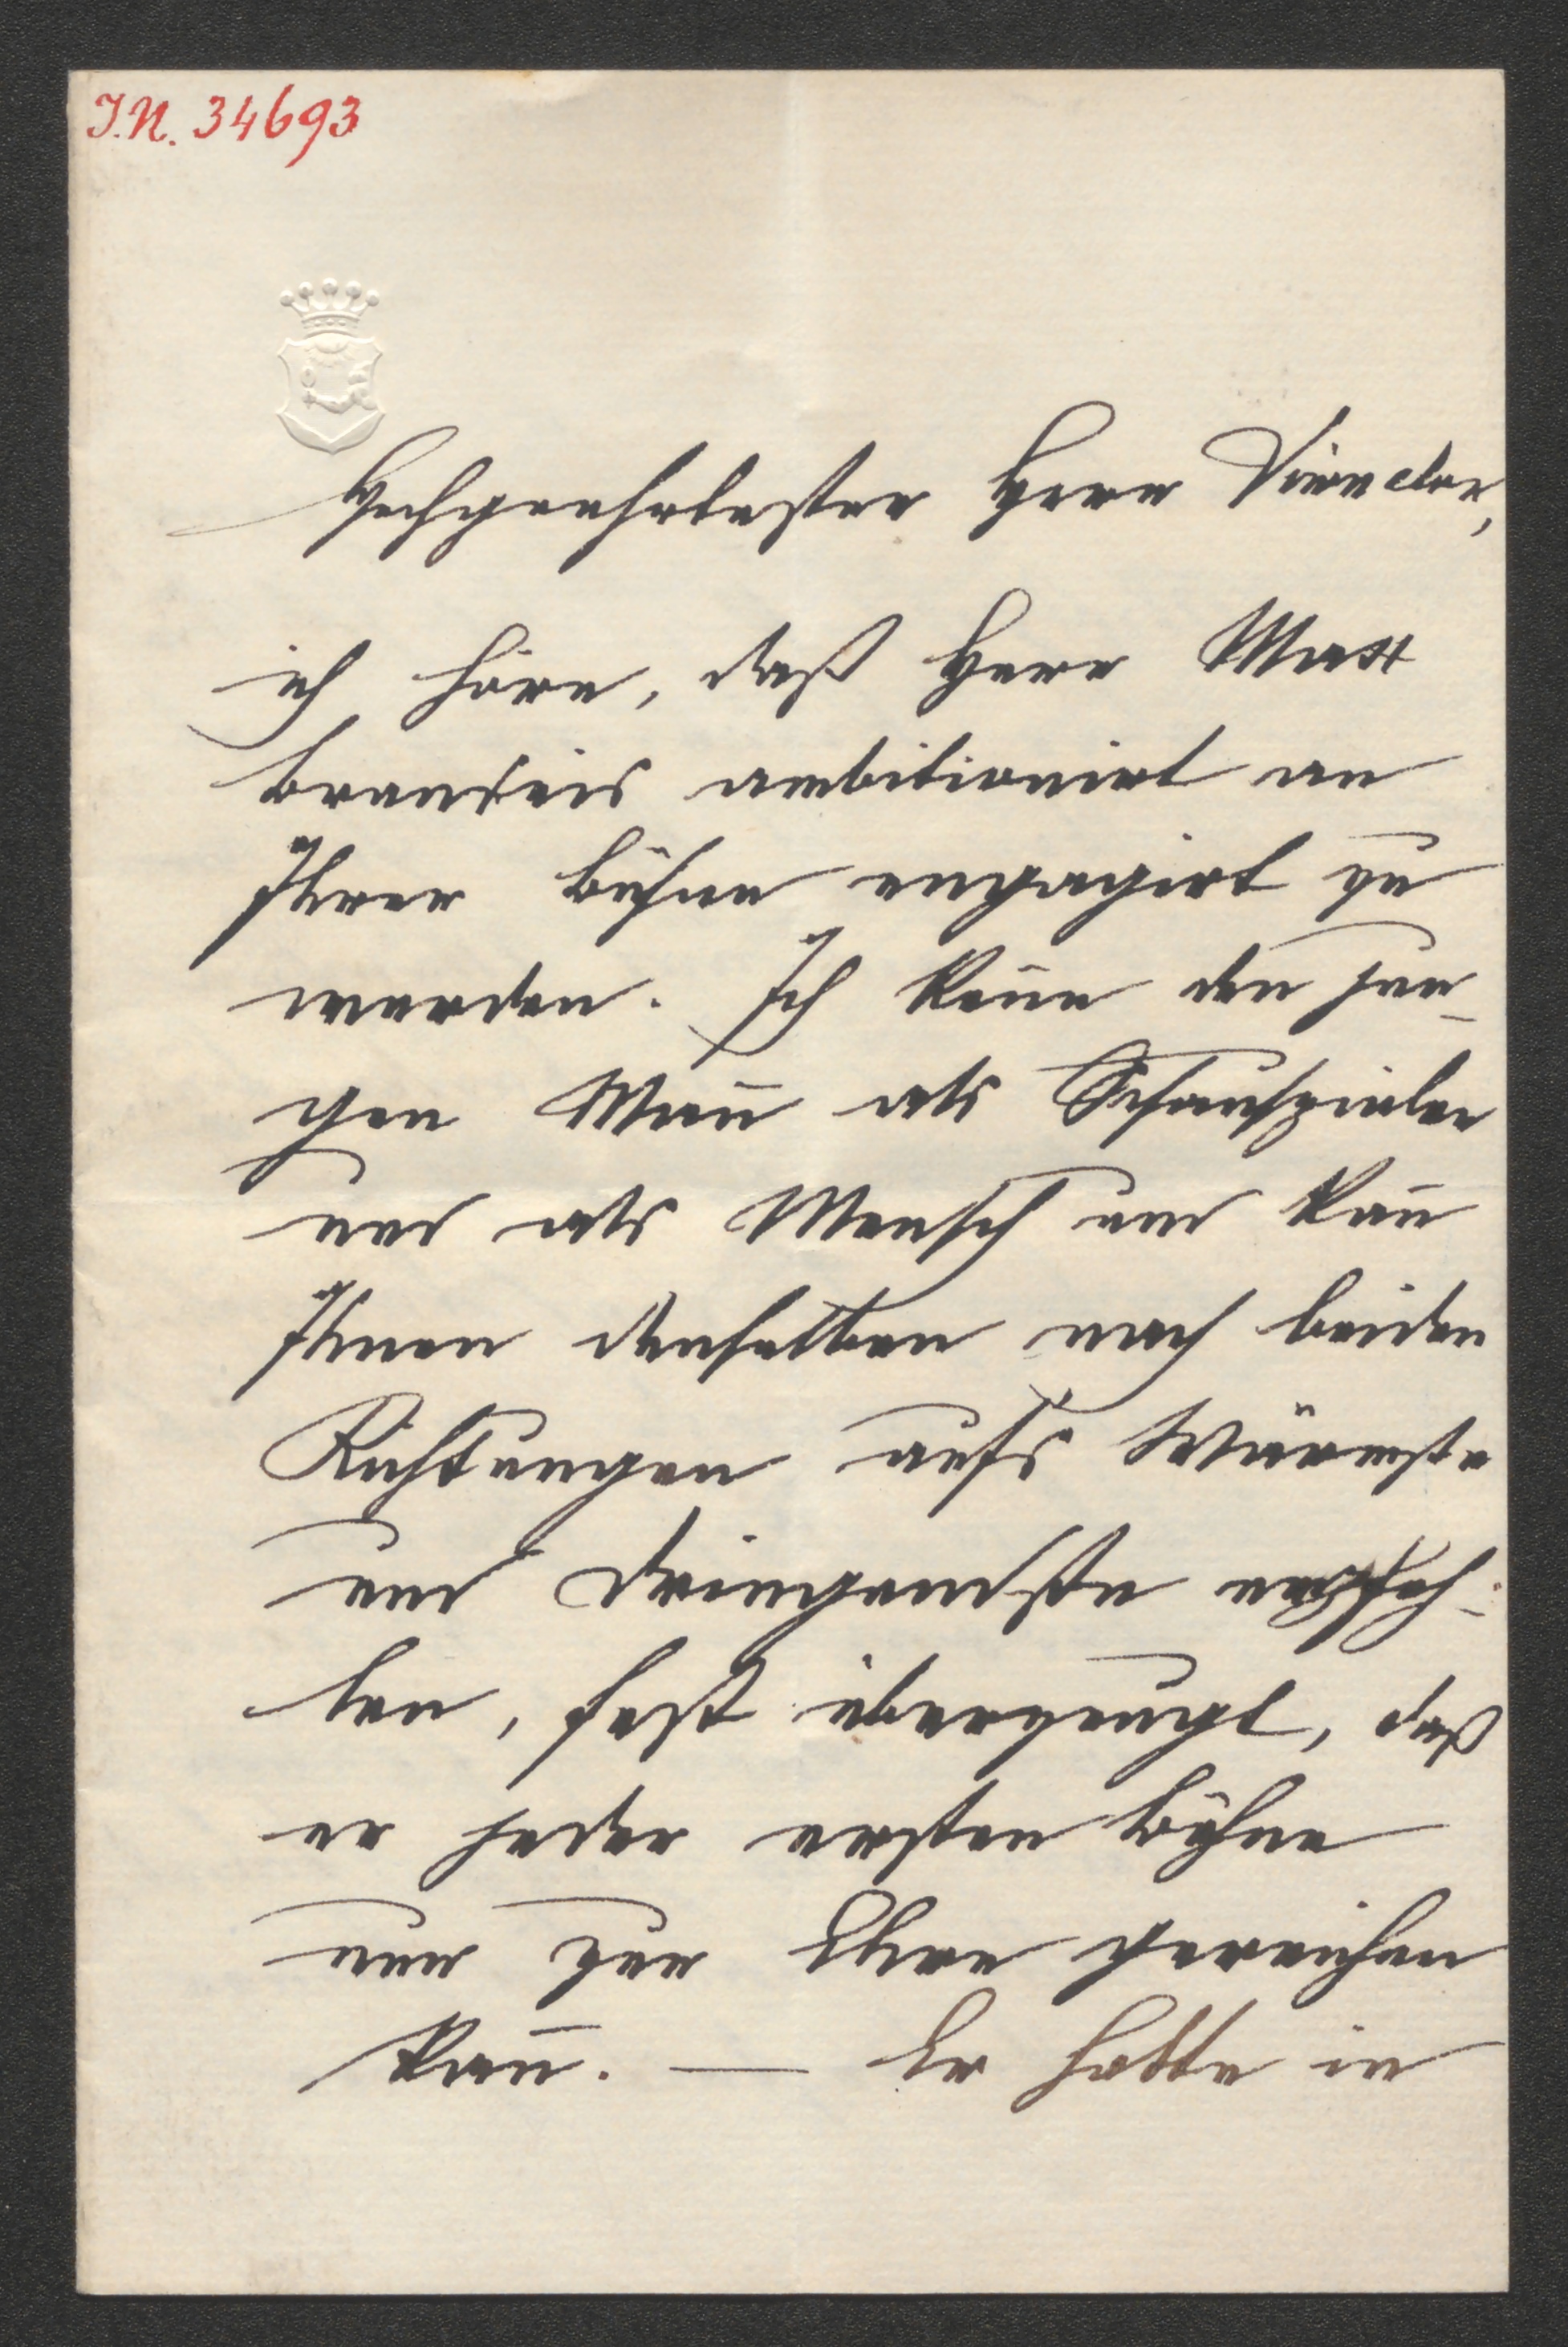 J.N. 34693
Hochgeehrtester Herr Director,
ich höre, daß Herr Max
Brandeis ambitionirt an
Ihrer Bühne engagirt zu
werden. Ich keñe den jun-
gen Mañ als Schauspieler
und als Mensch und kañ
Ihnen denselben nach beiden
Richtungen aufs Wärmste
und Dringendste empfeh-
len, fest überzeugt, daß
er jeder ersten Bühne
nur zur Ehre gereichen
kañ. — Er hatte in